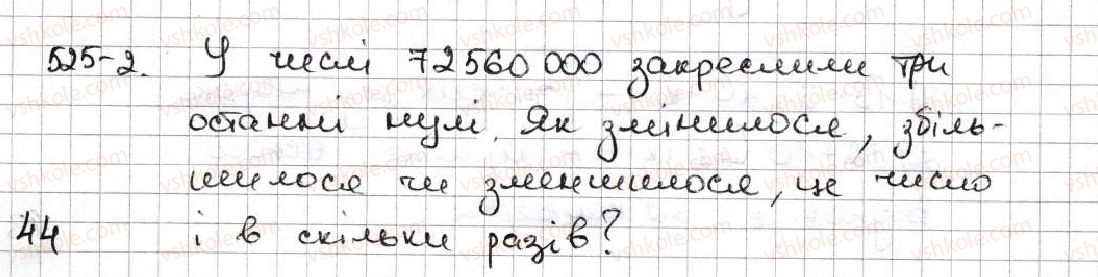 525-2. У числі 72560000 закреслили три
останні нулі. Як змінилося, збіль-
шилося чи зменшилося, це число
44 і в скільки разів?